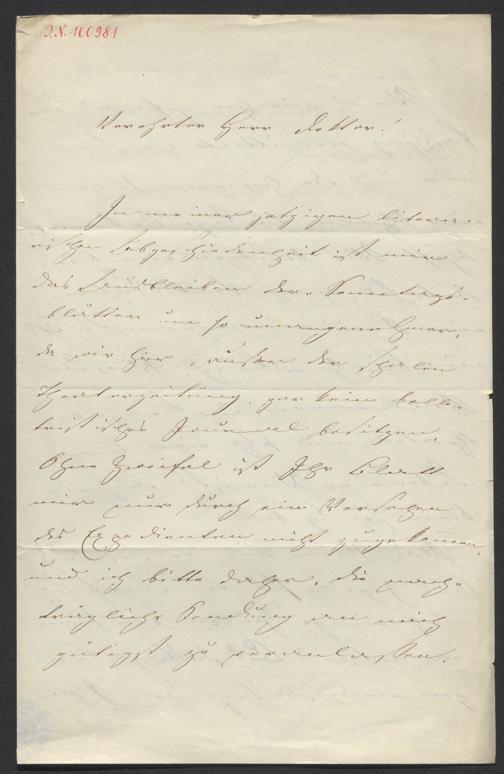 I.N. 100981
Verehrter Herr Doktor!
In meiner jetzigen litera-
rischen Abgeschiedenheit ist mir
das Ausbleiben der Sonntags-
blätter um so unangenehmer,
da wir hier, außer der schalen
Theaterzeitung, gar kein belle-
tristisches Journal besitzen.
Ohne Zweifel ist Ihr Blatt
mir nur durch ein Versehen
des Expedienten nicht zugekommen,
und ich bitte daher, die nach-
trägliche Sendung an mich
gütigst zu veranlassen.